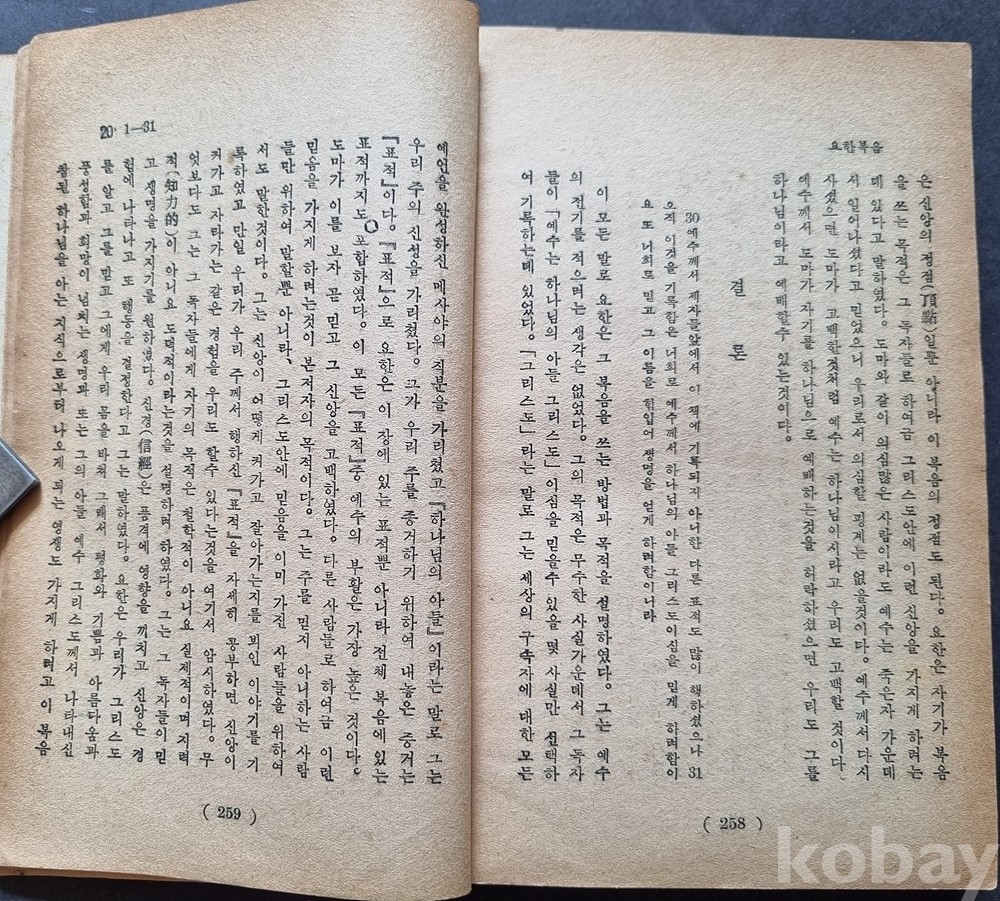 요한복음
은 신앙의 정점(頂點)일뿐 아니라 이 복음의 정점도 된다. 요한은 자기가 복음
을 쓰는 목적은 그 독자들로 하여금 그리스도안에 이런 신앙을 가지게 하려는
데 있다고 말하였다. 도마와 같이 의심많은 사람이라도 예수는 죽은자 가운데
서 일어나셨다고 믿었으니 우리로서 의심할 핑계는 없을것이다. 예수께서 다시
사셨으면 도마가 고백한것처럼 예수는 하나님이시라고 우리도 고백할 것이다.
예수께서 도마가 자기를 하나님으로 예배하는것을 허락하셨으면 우리도 그를
하나님이라고 예배할수 있는것이다.
결론
30 예수께서 제자들앞에서 이 책에 기록되지 아니한 다른 표적도 많이 행하셨으나 31
오직 이것을 기록함은 너희로 예수께서 하나님의 아들 그리스도이심을 믿게 하려함이
요 또 너희로 믿고 그 이름을 힘입어 생명을 얻게 하려함이니라
이 모든 말로 요한은 그 복음을 쓰는 방법과 목적을 설명하였다. 그는 예수
의 전기를 적으려는 생각은 없었다. 그의 목적은 무수한 사실가운데서 그 독자
들이 「예수는 하나님의 아들 그리스도」이심을 믿을수 있을 몇 사실만 선택하
여 기록하는데 있었다. 「그리스도」라는 말로 그는 세상의 구속자에 대한 모든
( 258 )
20· 1—31
예언을 완성하신 메사야의 직분을 가리쳤고 『하나님의 아들』이라는 말로 그는
우리 주의 신성을 가리쳤다. 그가 우리 주를 증거하기 위하여 내놓은 증거는
『표적』이다. 『표적』으로 요한은 이 장에 있는 표적뿐 아니라 전체 복음에 있는
표적까지도 포함하였다. 이 모든 『표적』중 예수의 부활은 가장 높은 것이다.
도마가 이를 보자 곧 믿고 그 신앙을 고백하였다. 다른 사람들로 하여금 이런
믿음을 가지게 하려는것이 본저자의 목적이다. 그는 주를 믿지 아니하는 사람
들만 위하여 말할뿐 아니라, 그리스도안에 믿음을 이미 가진 사람들을 위하여
서도 말한것이다. 그는 신앙이 어떻게 커가고 잘아가는지를 뵈인 이야기를 기
록하였고 만일 우리가 우리 주께서 행하신 『표적』을 자세히 공부하면 신앙이
커가고 자라가는 같은 경험을 우리도 할수 있다는것을 여기서 암시하였다. 무
엇보다도 그는 그 독자들에게 자기의 목적은 철학적이 아니요 실제적이며 지력
적(知力的)이 아니요 도덕적이라는것을 설명하려 하였다. 그는 그 독자들이 믿
고 생명을 가지기를 원하였다. 신경(信經)은 품격에 영향을 끼치고 신앙은 경
험에 나타나고 또 행동을 결정한다고 그는 말하였다. 요한은 우리가 그리스도
를 알고 그를 믿고 그에게 우리 몸을 바쳐 그래서 평화와 기쁨과 아름다움과
풍성함과 희망이 넘치는 생명과 또는 그의 아들 예수 그리스도께서 나타내신
참된 하나님을 아는 지식으로부터 나오게 되는 영생도 가지게 하려고 이 복음
( 259 )
kobay